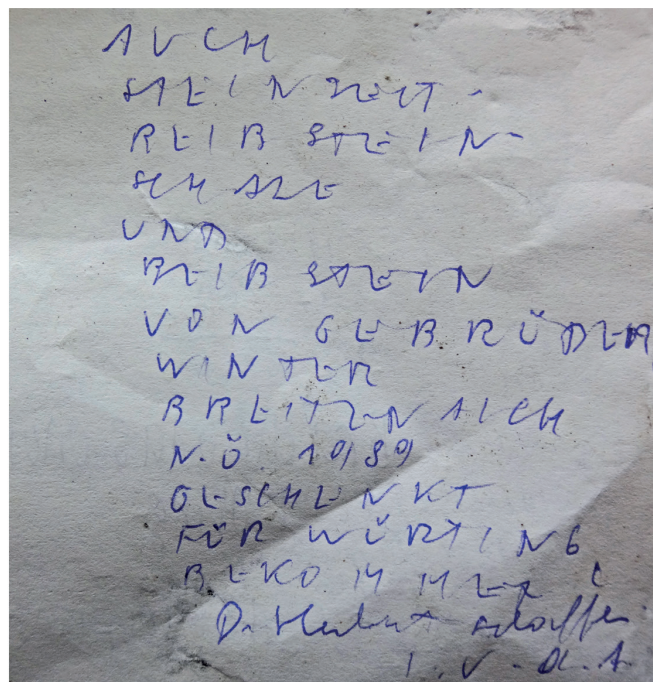 AUCH
STEINZEIT-
REIBSTEIN-
SCHALE
UND
REIBSTEIN
VON GEBRÜDER
WINTER
BREITENAICH
N.Ö 1989
GESCHENKT
FÜR WÜRTING
BEKOMMEN!
Dr. Herbert
I.V.D.A.